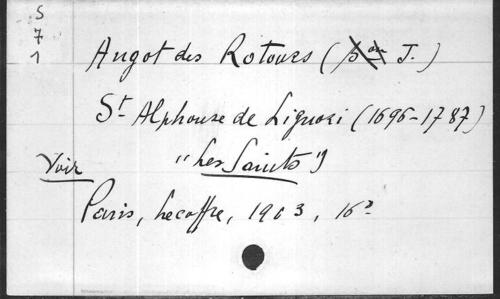 S
7
1
Angot des Rotours (Bon J.)
St Alphonse de Liguori (1696-1787)
Voir "Les Saints"
Paris, Lecoffre, 1903, 16°